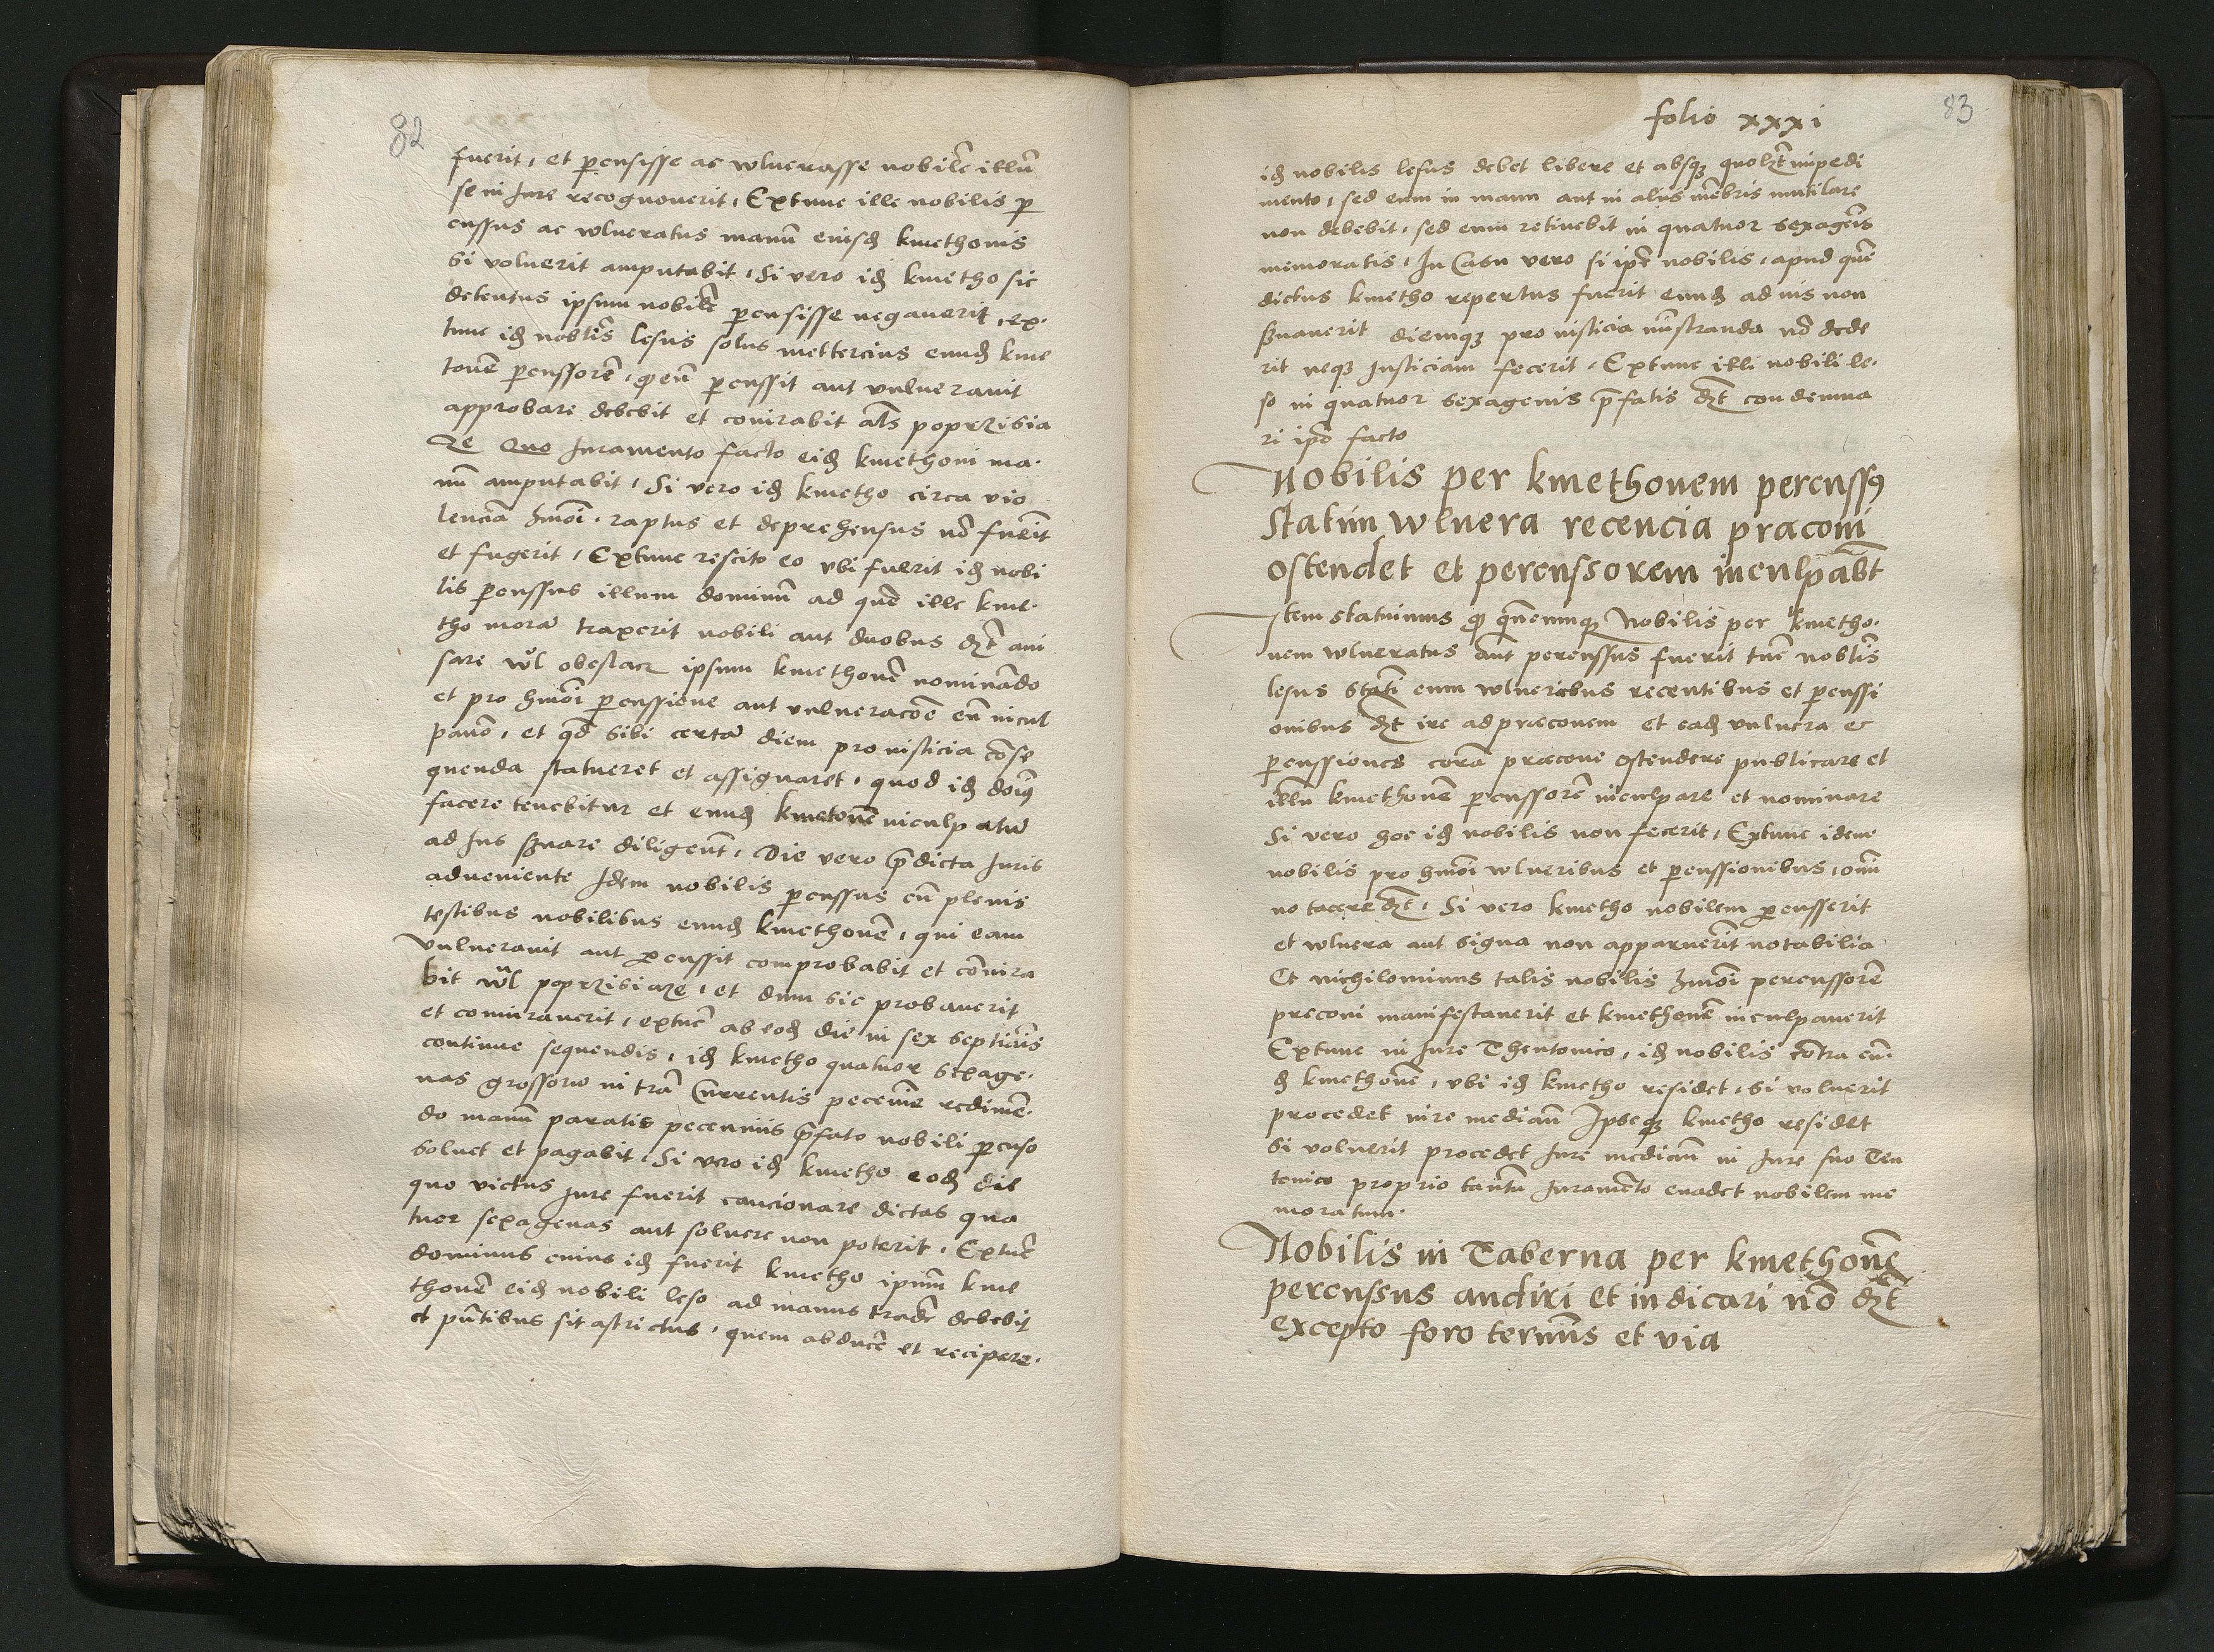 82
fuerit, et p̱cusisse ac wlnerasse nobilē illū
se in Jure recognouerit, Extunc ille nobilis p̱
cussus ac wlneratus manū eiusdꝫ kmethonis
si voluerit amputabit, Si vero idꝫ kmetho sic
detentus ipsum nobilē p̱cusisse negauerit, ex-
tunc idꝫ nobīlis lesus solus mettercius eundꝫ kme
tonē p̱cussorē, ꝙ eū p̱cussit aut vulnerauit
approbare debebit et coniurabit al̄s poprzisia
ze Quo Juramento facto eidꝫ kmethoni ma-
nū amputabit, Si vero idꝫ kmetho circa vio
lenciā hm̄oi, raptus et deprehensus nō fuerit
et fugerit, Extunc rescito eo vbi fuerit idꝫ nobi
lis p̱cussus illum dominū ad quē ille kme-
tho morā traxerit nobili aut duobus dꝫt aui
sare vl̄ obestacz ipsum kmethonē nominādo
et pro hm̄oi p̱cussione aut vulneracōe eū incul
pando, et qd̄ sibi certā diem pro iusticia cōse
quenda statueret et assignaret, quod idꝫ dom̄s
facere tenebitur et eundꝫ kmetonē inculpatū
ad Jus ẜuare diligent̄, Die vero p̄dicta Juris
adueniente Jdem nobilis p̱cussus cū plenis
testibus nobilibus eundꝫ kmethonē, qui eam
vulnerauit aut p̱cussit comprobabit et cōiura
bit vl̄ poprzisiaze, et dum sic probauerit
et coniurauerit, extūc ab eodꝫ die in sex septiānis
continue sequendis, idꝫ kmetho quatuor sexage-
nas grossorū in trā Currentis peccunie redimē-
do manū paratis peccuniis p̄fato nobili p̱cuso
soluet et pagabit, Si vero idꝫ kmetho eodꝫ die
quo victus Jure fuerit caucionare dictas qua
tuor sexagenas aut soluere non poterit, Extūc
dominus cuius idꝫ fuerit kmetho ipsum kme
thonē eidꝫ nobili leso ad manus tradē debebit
et pn̄tibus sit astrictus, quem abducē et recipere-
folio xxxi
83
idꝫ nobilis lesus debet libere et absqꝫ quolꝫt impedi
mento, sed eum in manu aut in aliis mēbris mutilare
non debebit, sed eum retinebit in quatuor sexagēis
memoratis, In Casu vero si ipē nobilis, apud quē
dictus kmetho repertus fuerit eundꝫ ad ius non
ẜuauerit diemqꝫ pro iusticia mīstranda nō dede
rit neqꝫ Justiciam fecerit, Extunc illi nobili le-
so in quatuor sexagenis p̄fatis dꝫt condemna
ri ipō facto
Nobilis per kmethonem percussꝰ
statim wlnera recencia praeconi
ostendet et percussorem inculpabt̄
Item statuimus ꝙ quēcunqꝫ Nobilis per kmetho-
nem wlneratus aut percussus fuerit tūc nobīlis
lesus statī cum wlneribus recentibus et p̱cussi
onibus dꝫt ire ad praeconem et eadꝫ vulnera &
p̱cussiones corā praecone ostendere publicare et
illū kmethonē p̱cussorē inculpare et nominare
Si vero hoc idꝫ nobilis non fecerit, Extunc idem
nobilis pro hm̄oi wlneribus et p̱cussionibus, omī
no tacere dꝫt, Si vero kmetho nobilem p̱cusserit
et wlnera aut signa non apparuerīt notabilia
Et nichilominus talis nobilis hm̄oi percussorē
preconi manifestauerit et kmethonē inculpauerit
Extunc in Jure Theutonico, idꝫ nobilis cōtra eū-
dꝫ kmethonē, vbi idꝫ kmetho residet, si voluerit
procedet iure mediaū Ipseqꝫ kmetho residet
si voluerit procedet Jure mediaū in Jure suo Teu
tonico proprio tantū Juramēto euadet nobilem me
moratum.
Nobilis in Taberna per kmethonē
percussus audiri et iudicari nō dꝫt
excepto foro termīs et via